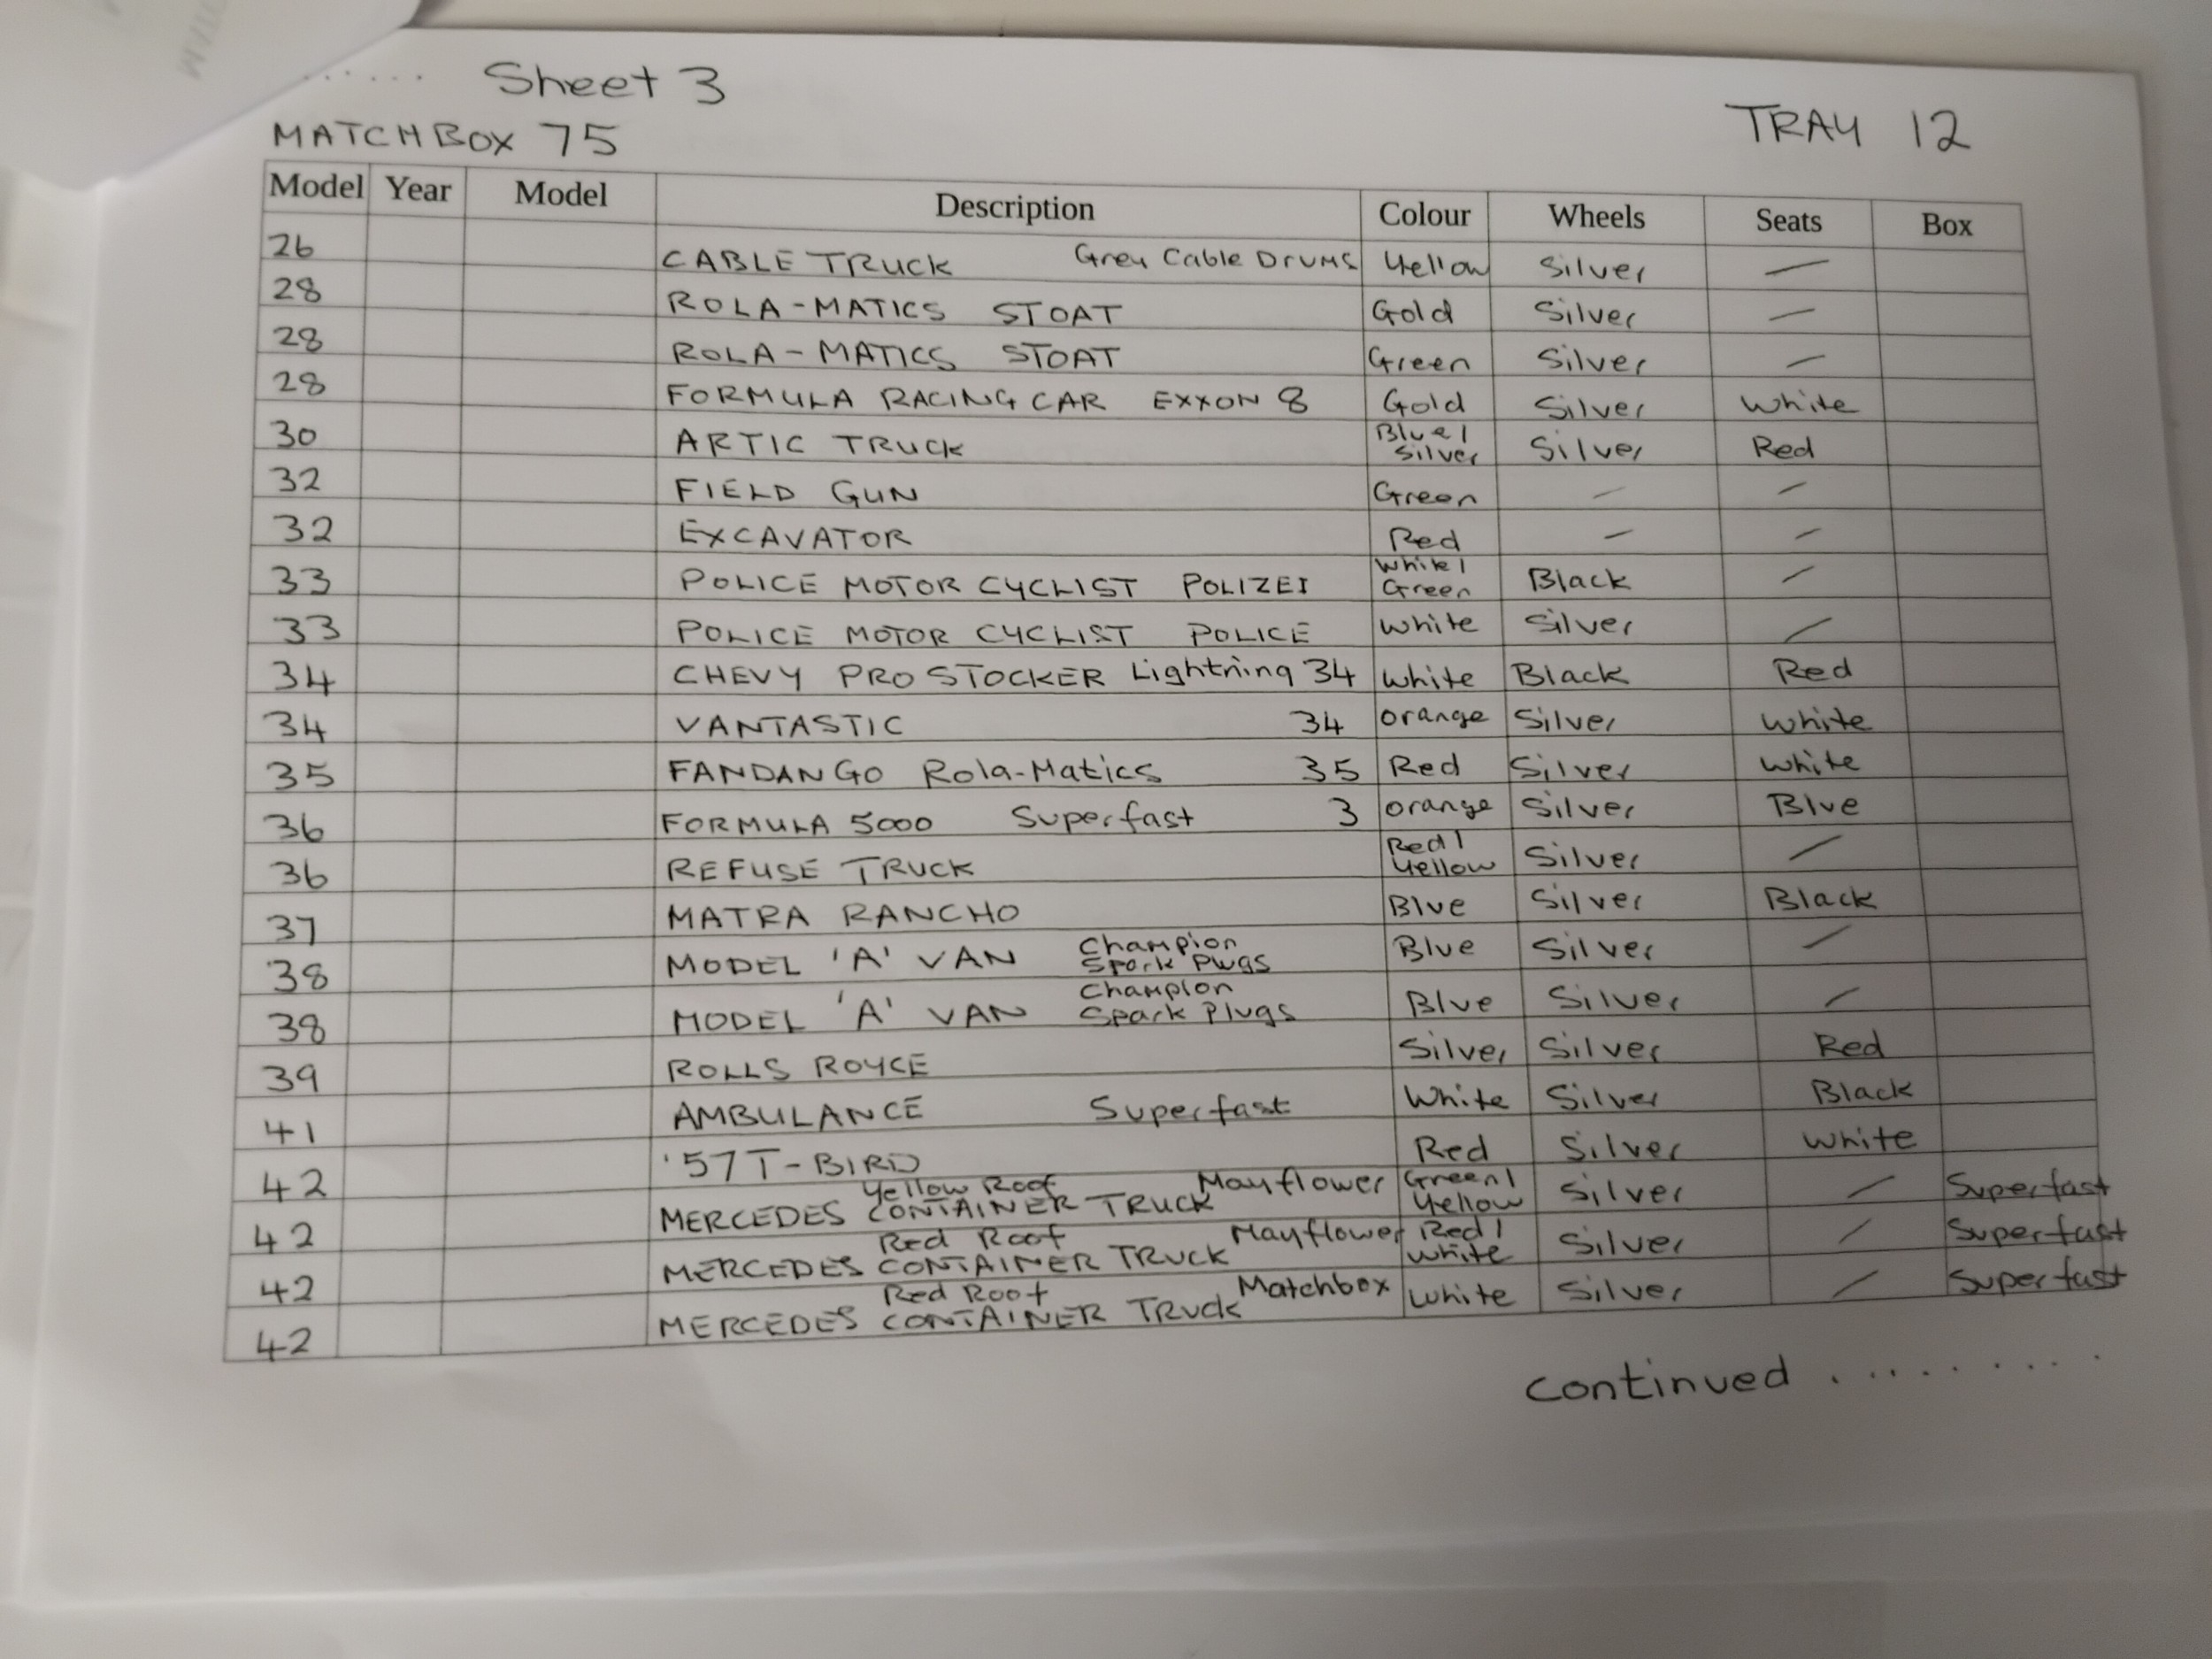 ...... Sheet 3
MATCHBOX 75 TRAY 12
Model Year Model Description Colour Wheels Seats Box
26 CABLE TRUCK Grey Cable Drums Yellow Silver —
28 ROLA-MATICS STOAT Gold Silver —
28 ROLA-MATICS STOAT Green Silver —
28 FORMULA RACING CAR EXXON 8 Gold Silver White
30 ARTIC TRUCK Blue/Silver Silver Red
32 FIELD GUN Green — —
32 EXCAVATOR Red — —
33 POLICE MOTOR CYCLIST POLIZEI White/Green Black —
33 POLICE MOTOR CYCLIST POLICE White Silver —
34 CHEVY PRO STOCKER Lightning 34 White Black Red
34 VANTASTIC 34 Orange Silver White
35 FANDANGO Rola-Matics 35 Red Silver White
36 FORMULA 5000 Superfast 3 Orange Silver Blue
36 REFUSE TRUCK Red/Yellow Silver —
37 MATRA RANCHO Blue Silver Black
38 MODEL 'A' VAN Champion Spark Plugs Blue Silver —
38 MODEL 'A' VAN Champion Spark Plugs Blue Silver —
39 ROLLS ROYCE Silver Silver Red
41 AMBULANCE Superfast White Silver Black
42 '57 T-BIRD Red Silver White
42 MERCEDES CONTAINER TRUCK Yellow Roof Mayflower Green/Yellow Silver — Superfast
42 MERCEDES CONTAINER TRUCK Red Roof Mayflower Red/White Silver — Superfast
42 MERCEDES CONTAINER TRUCK Red Roof Matchbox White Silver — Superfast
continued .........